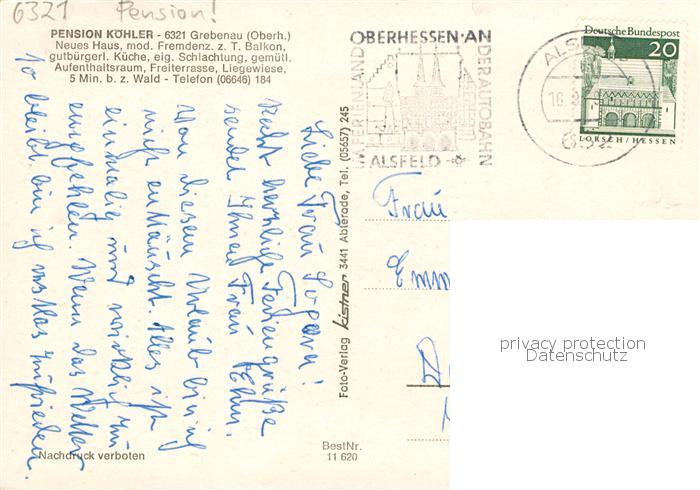 6321 Pension!
PENSION KÖHLER - 6321 Grebenau (Oberh.)
Neues Haus, mod. Fremdenz. z. T. Balkon,
gutbürgerl. Küche, eig. Schlachtung, gemütl.
Aufenthaltsraum, Freiterrasse, Liegewiese,
5 Min. b. z. Wald - Telefon (06646) 184
Liebe Frau
Recht herzliche Feriengrüße
sendet Ihnen Frau
Von diesem Urlaub bin ich
nicht enttäuscht. Alles ist
einmalig und wirklich zu
empfehlen. Wenn das Wetter
so bleibt bin ich restlos zufrieden.
Nachdruck verboten
Foto-Verlag kistner 3441 Abterode, Tel. (05657) 245
BestNr.
11 620
OBERHESSEN·AN
DER AUTOBAHN
FERIENLAND
ALSFELD
Deutsche Bundespost
20
LORSCH/HESSEN
Frau
privacy protection
Datenschutz